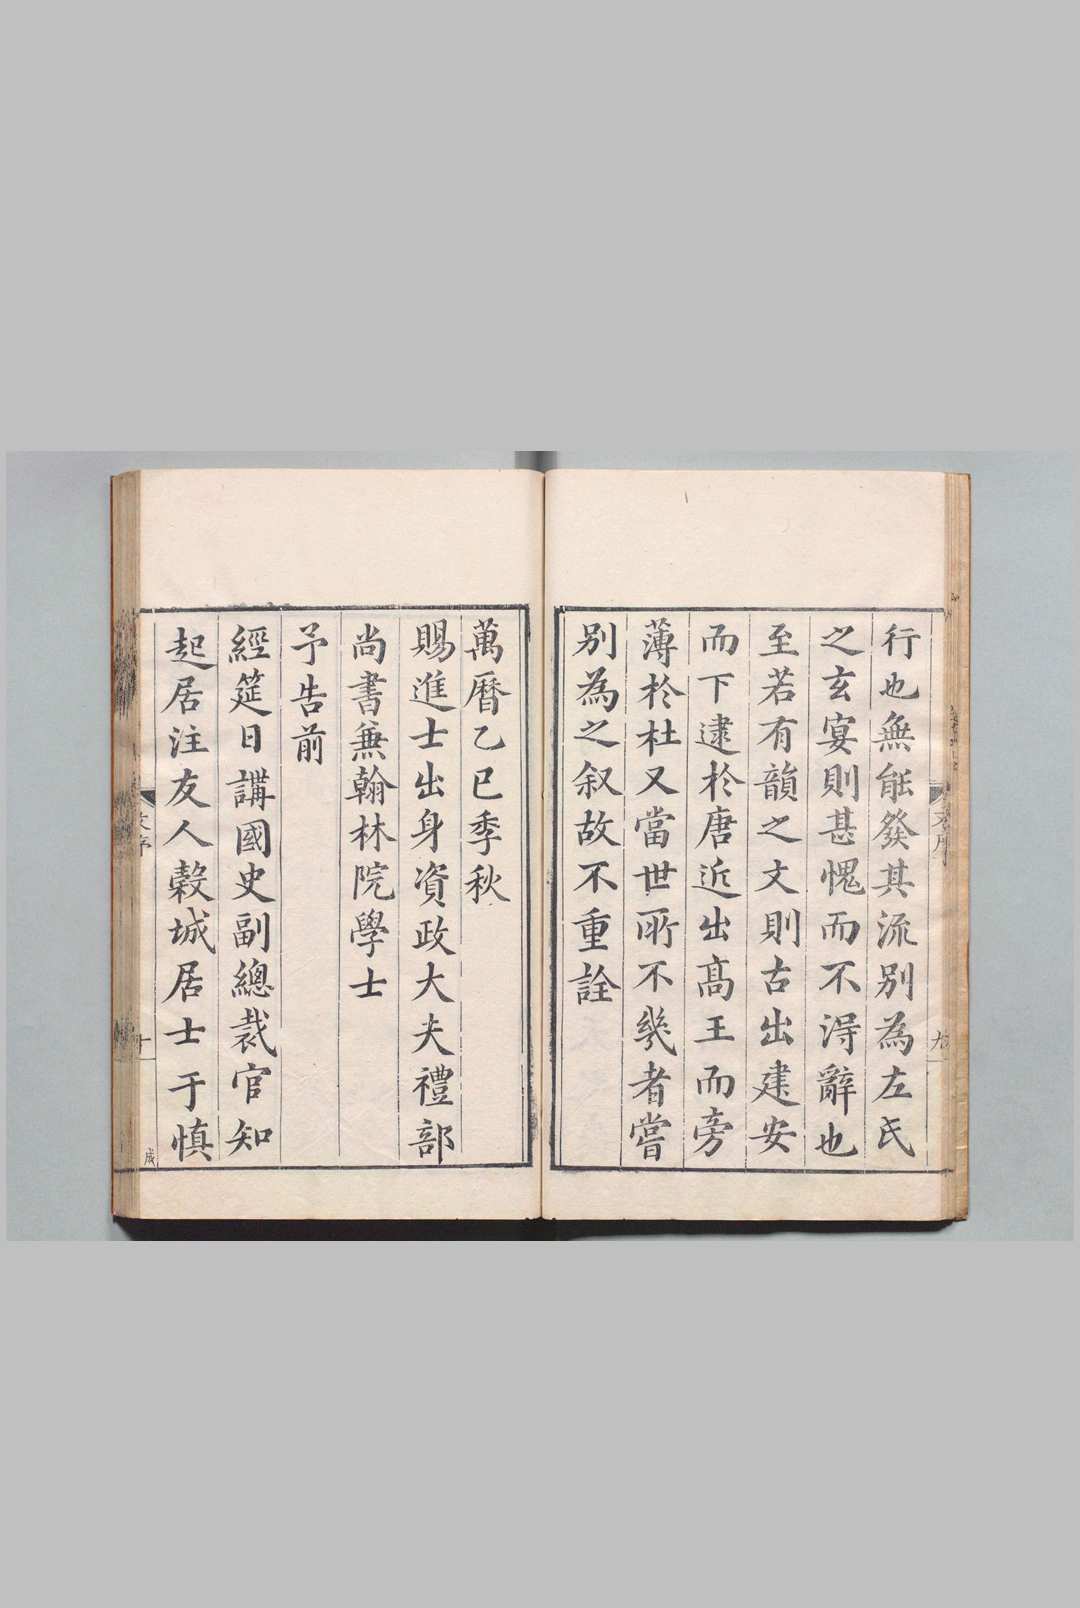 行也無能發其流別為左氏
之玄宴則甚愧而不淂辭也
至若有韻之文則古出建安
而下逮於唐近出高王而旁
薄於杜又當世所不幾者嘗
別為之叙故不重詮
文序
九
萬曆乙巳季秋
賜進士出身資政大夫禮部
尚書兼翰林院學士
予告前
經筵日講國史副總裁官知
起居注友人穀城居士于慎
文序
十
成